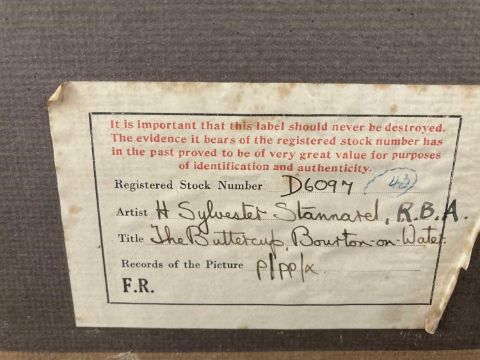 It is important that this label should never be destroyed.
The evidence it bears of the registered stock number has
in the past proved to be of very great value for purposes
of identification and authenticity.
Registered Stock Number D6097 43
Artist H Sylvester Stannard, R.B.A.
Title The Buttercup, Bourton-on-Water
Records of the Picture p/pp/x
F.R.